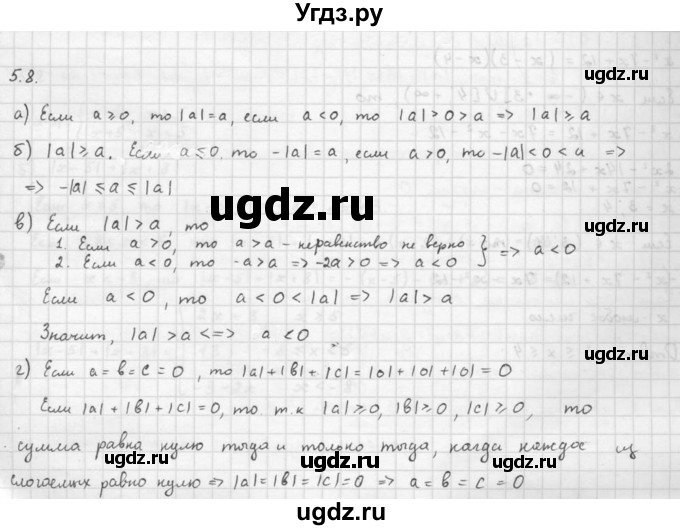 Угдз.ру
5.8.
ugdz.ru
а) Если a ⩾ 0, то |a| = a, если a < 0, то |a| > 0 > a => |a| ⩾ a
б) |a| ⩾ a. Если a ⩽ 0 то -|a| = a, если a > 0, то -|a| < 0 < a =>
=> -|a| ⩽ a ⩽ |a|
ugdz.ru
ugdz.ru
в) Если |a| > a, то
1. Если a > 0, то a > a - неравенство не верно } => a < 0
2. Если a < 0, то -a > a => -2a > 0 => a < 0
ugdz.ru
Если a < 0, то a < 0 < |a| => |a| > a
Значит, |a| > a <=> a < 0
ugdz.ru
г) Если a = в = c = 0, то |a| + |в| + |c| = |0| + |0| + |0| = 0
ugdz.ru
Если |a| + |в| + |c| = 0, то т.к |a| ⩾ 0, |в| ⩾ 0, |c| ⩾ 0, то
сумма равна нулю тогда и только тогда, когда каждое из
ugdz.ru
слогаемых равно нулю => |a| = |в| = |c| = 0 => a = в = c = 0
ugdz.ru